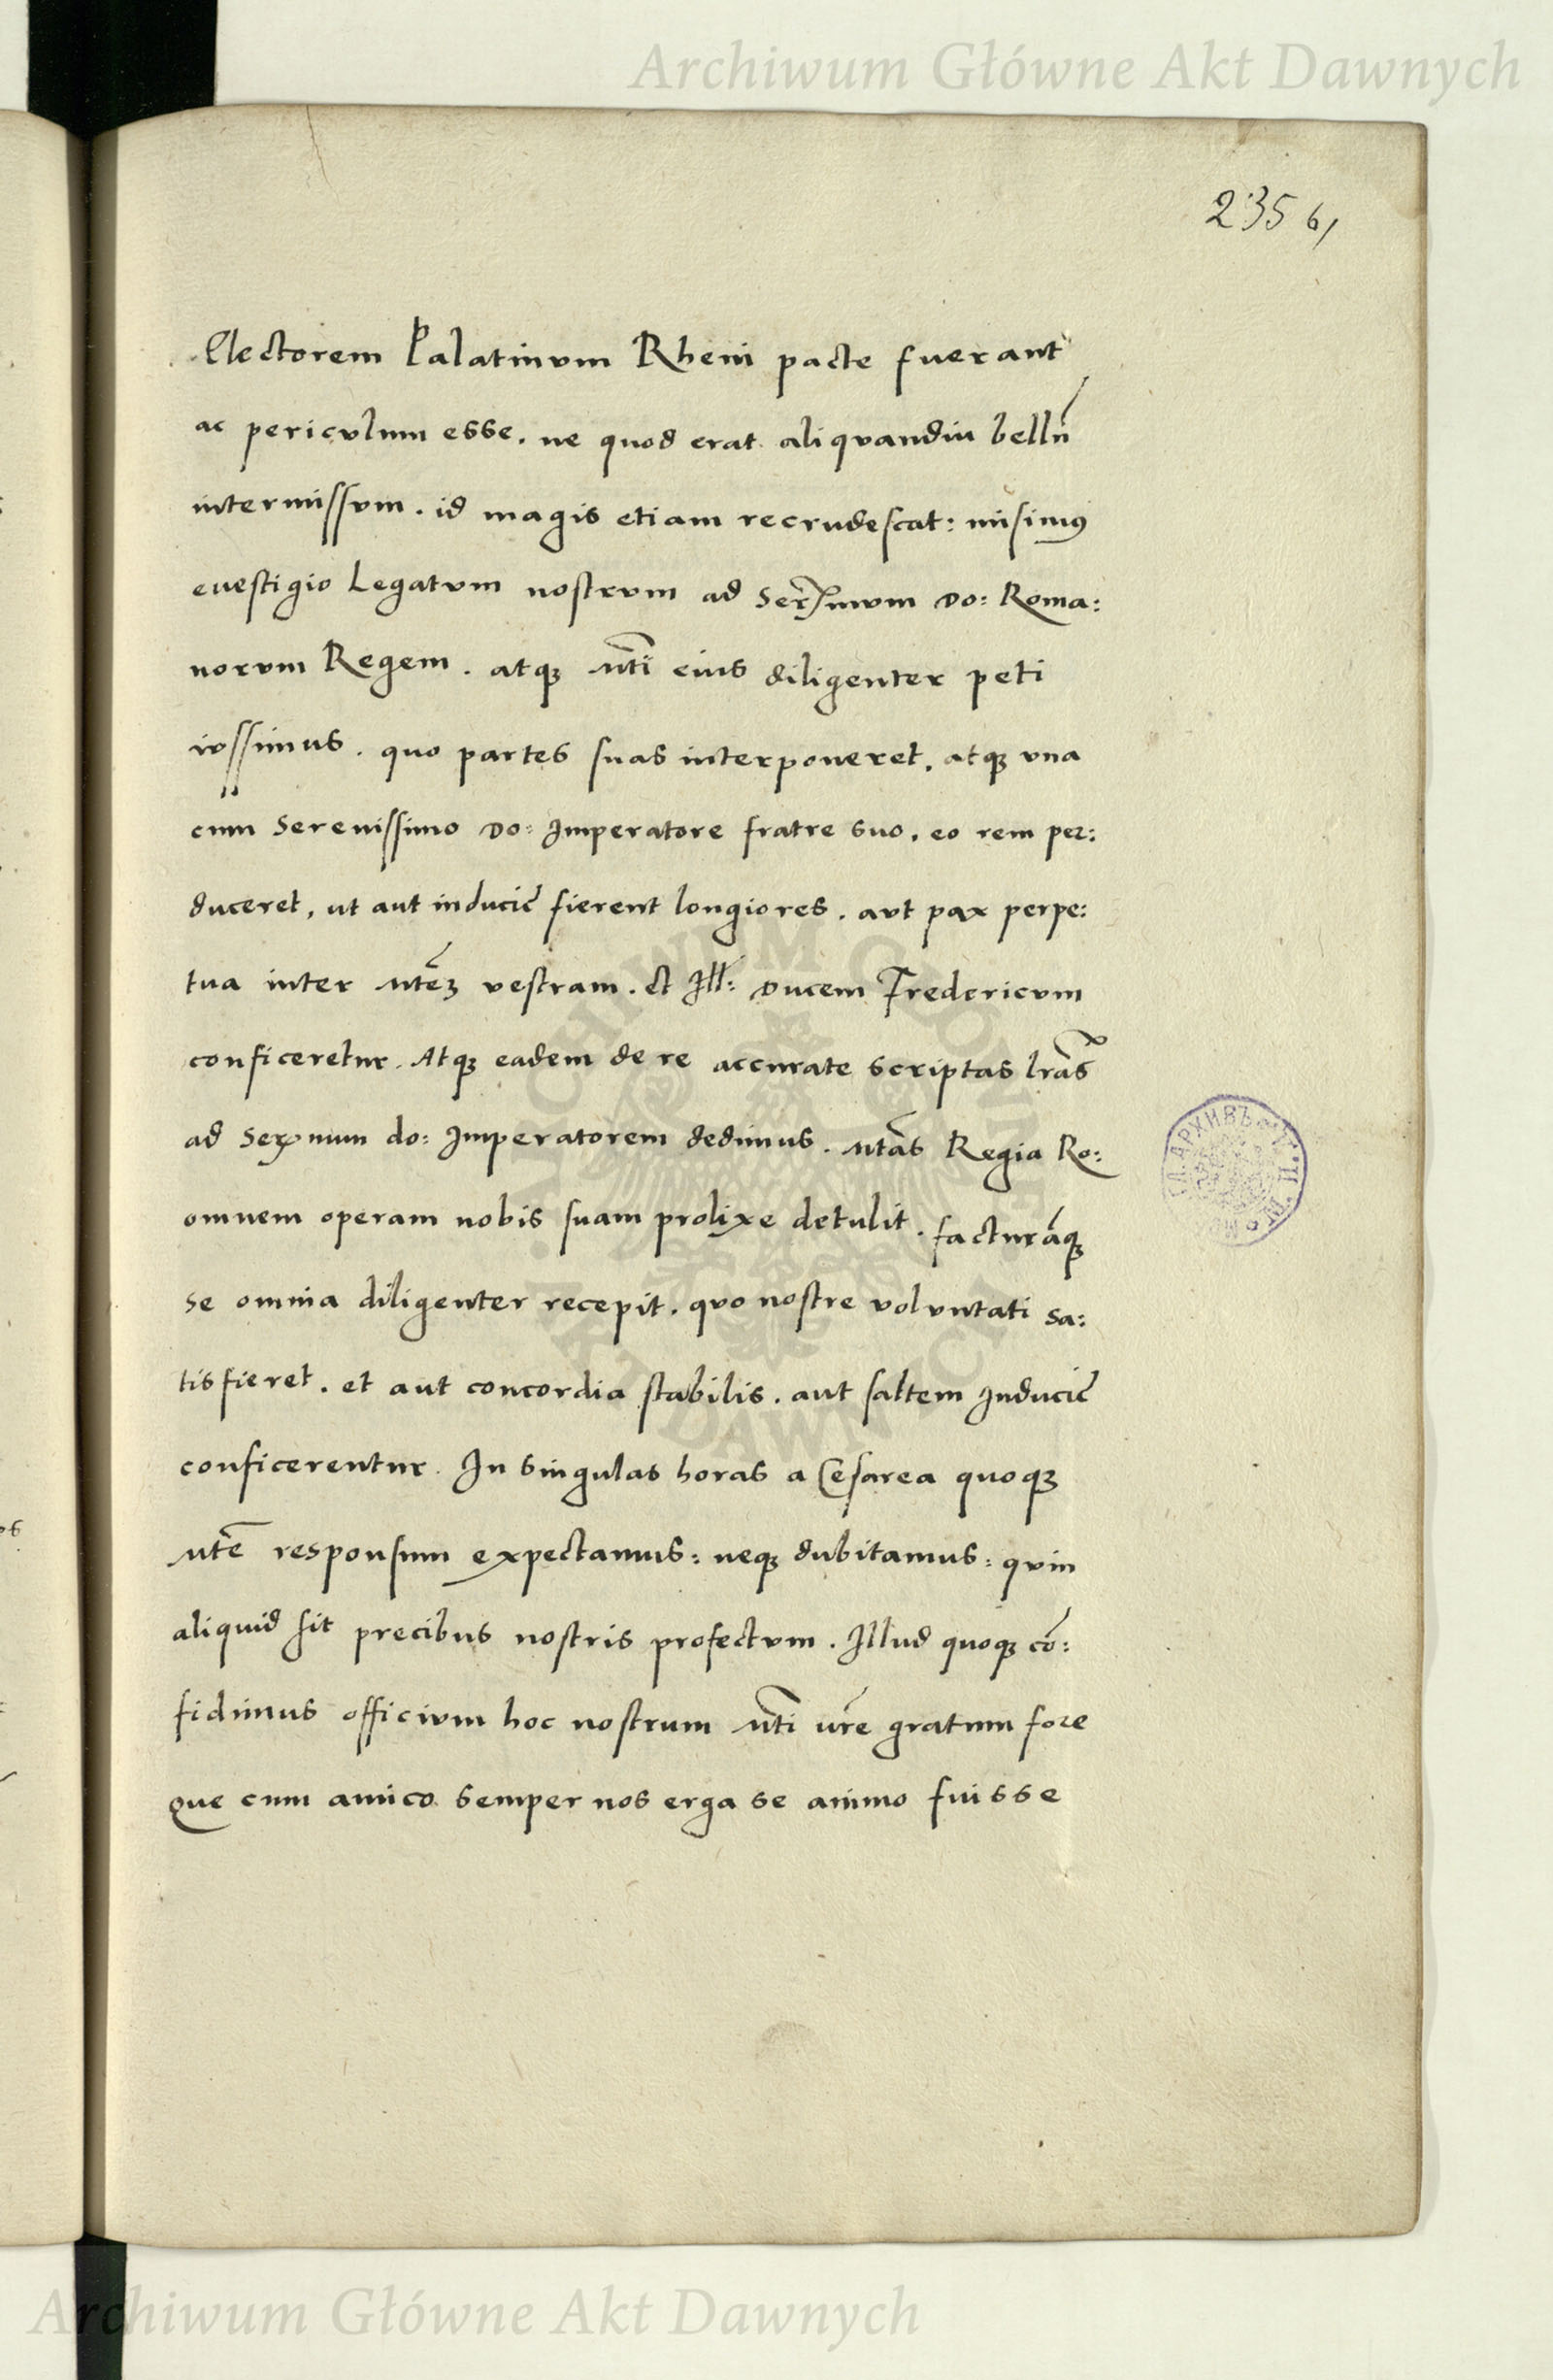 Archiwum Główne Akt Dawnych
235 61
Electorem Palatinum Rheni pacte fuerant
ac periculum esse. ne quod erat aliquandiu bellū
intermissum. id magis etiam recrudescat: misimꝰ
evestigio Legatum nostrum ad Serſmum Do: Roma:
norum Regem. atqꝫ Mti eius diligenter peti
iussimus. quo partes suas interponeret. atqꝫ una
cum Serenissimo Do: Imperatore fratre suo. eo rem per:
duceret, ut aut inducię fierent longiores. aut pax perpe:
tua inter Mtēꝫ vestram. et Ill: Ducem Fredericum
conficeretur. Atqꝫ eadem de re accurate scriptas lrās
ad Serꝫmum do: Imperatorem dedimus. Mtās Regia Ro:
omnem operam nobis suam prolixe detulit. facturāqꝫ
se omnia diligenter recepit. quo nostre voluntati sa:
tisfieret. et aut concordia stabilis. aut saltem Inducię
conficerentur. In singulas horas a Cesarea quoqꝫ
Mtē responsum expectamus: neqꝫ dubitamus: quin
aliquid sit precibus nostris profectum. Illud quoqꝫ cō:
fidimus officium hoc nostrum Mti vrē gratum fore
que cum amico semper nos erga se animo fuisse
Archiwum Główne Akt Dawnych